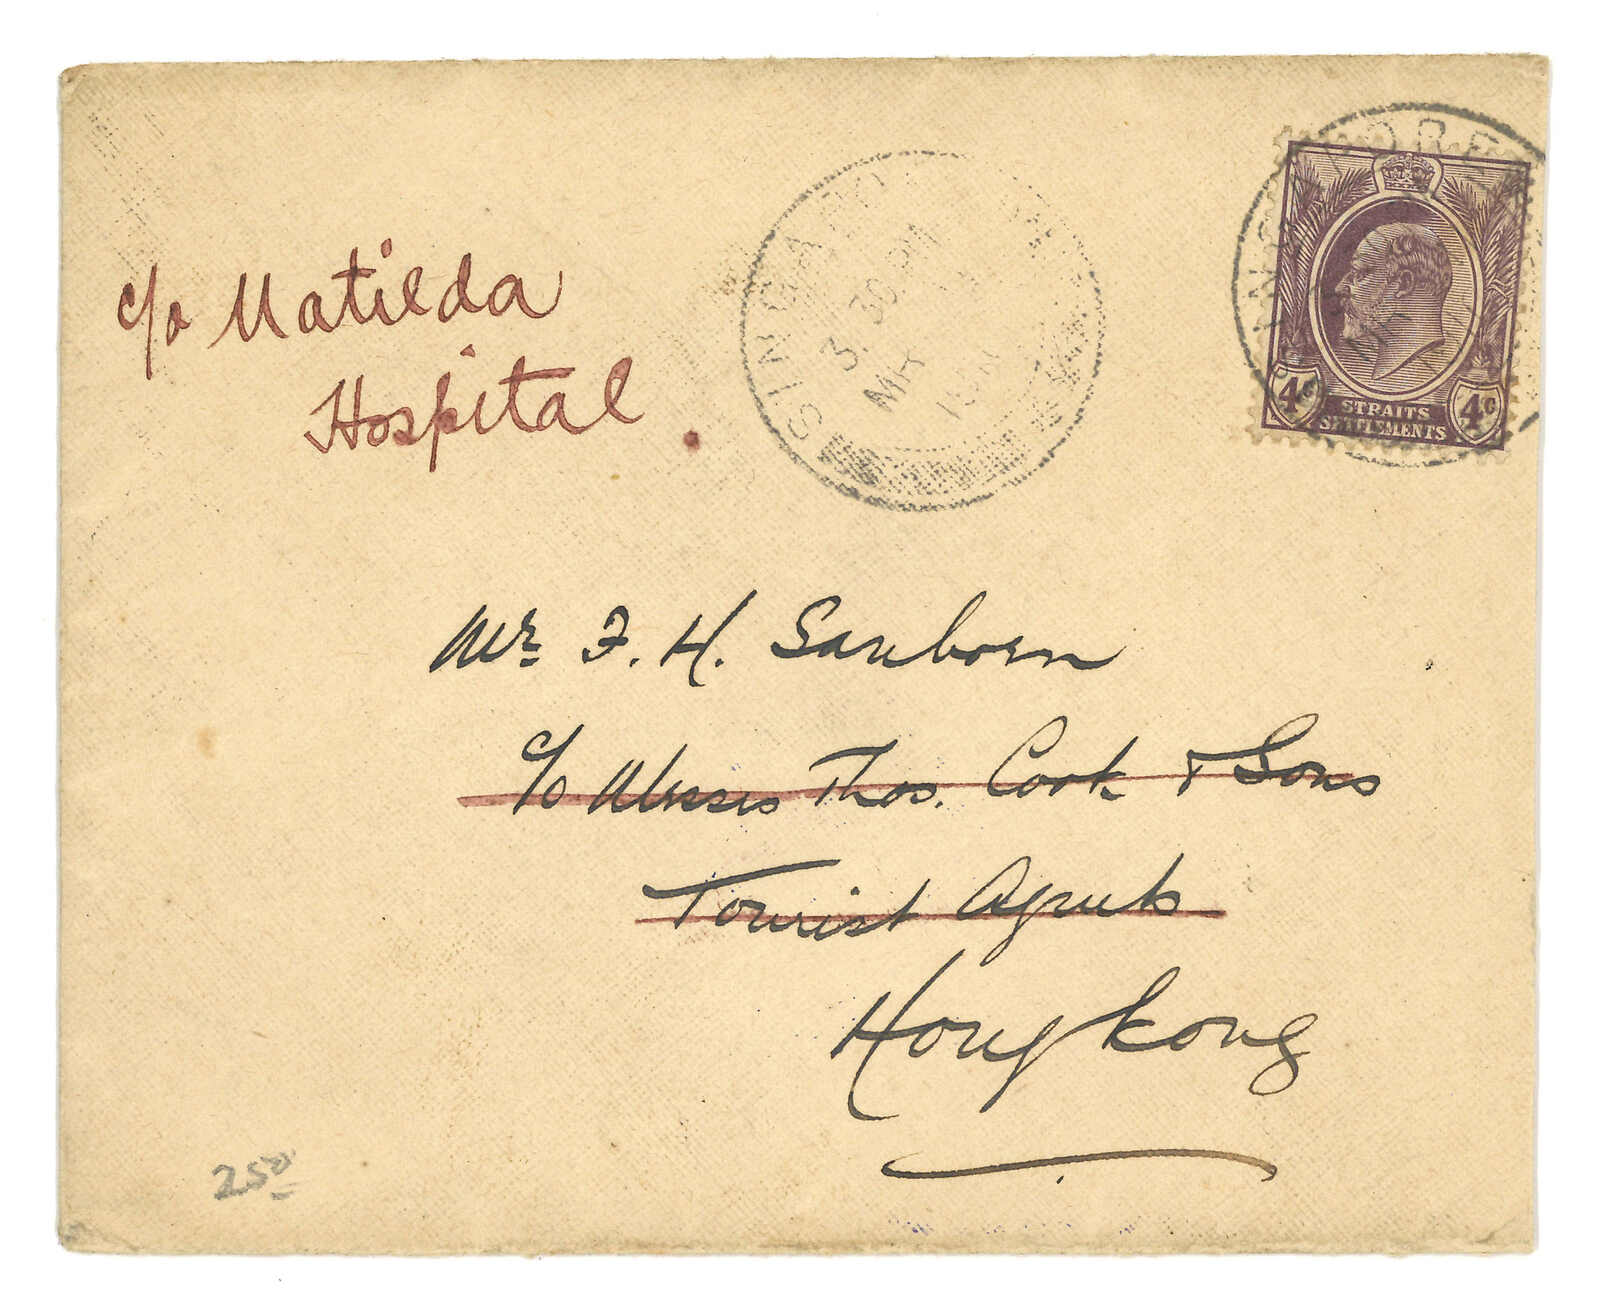 c/o Matilda
Hospital.
SINGAPO
3. 30 PM
MR
SINGAPORE
MR
4c 4c
STRAITS
SETTLEMENTS
Mr. F. H. Sanborn
c/o Messrs Thos. Cook & Sons
Tourist Agents
Hong kong
250